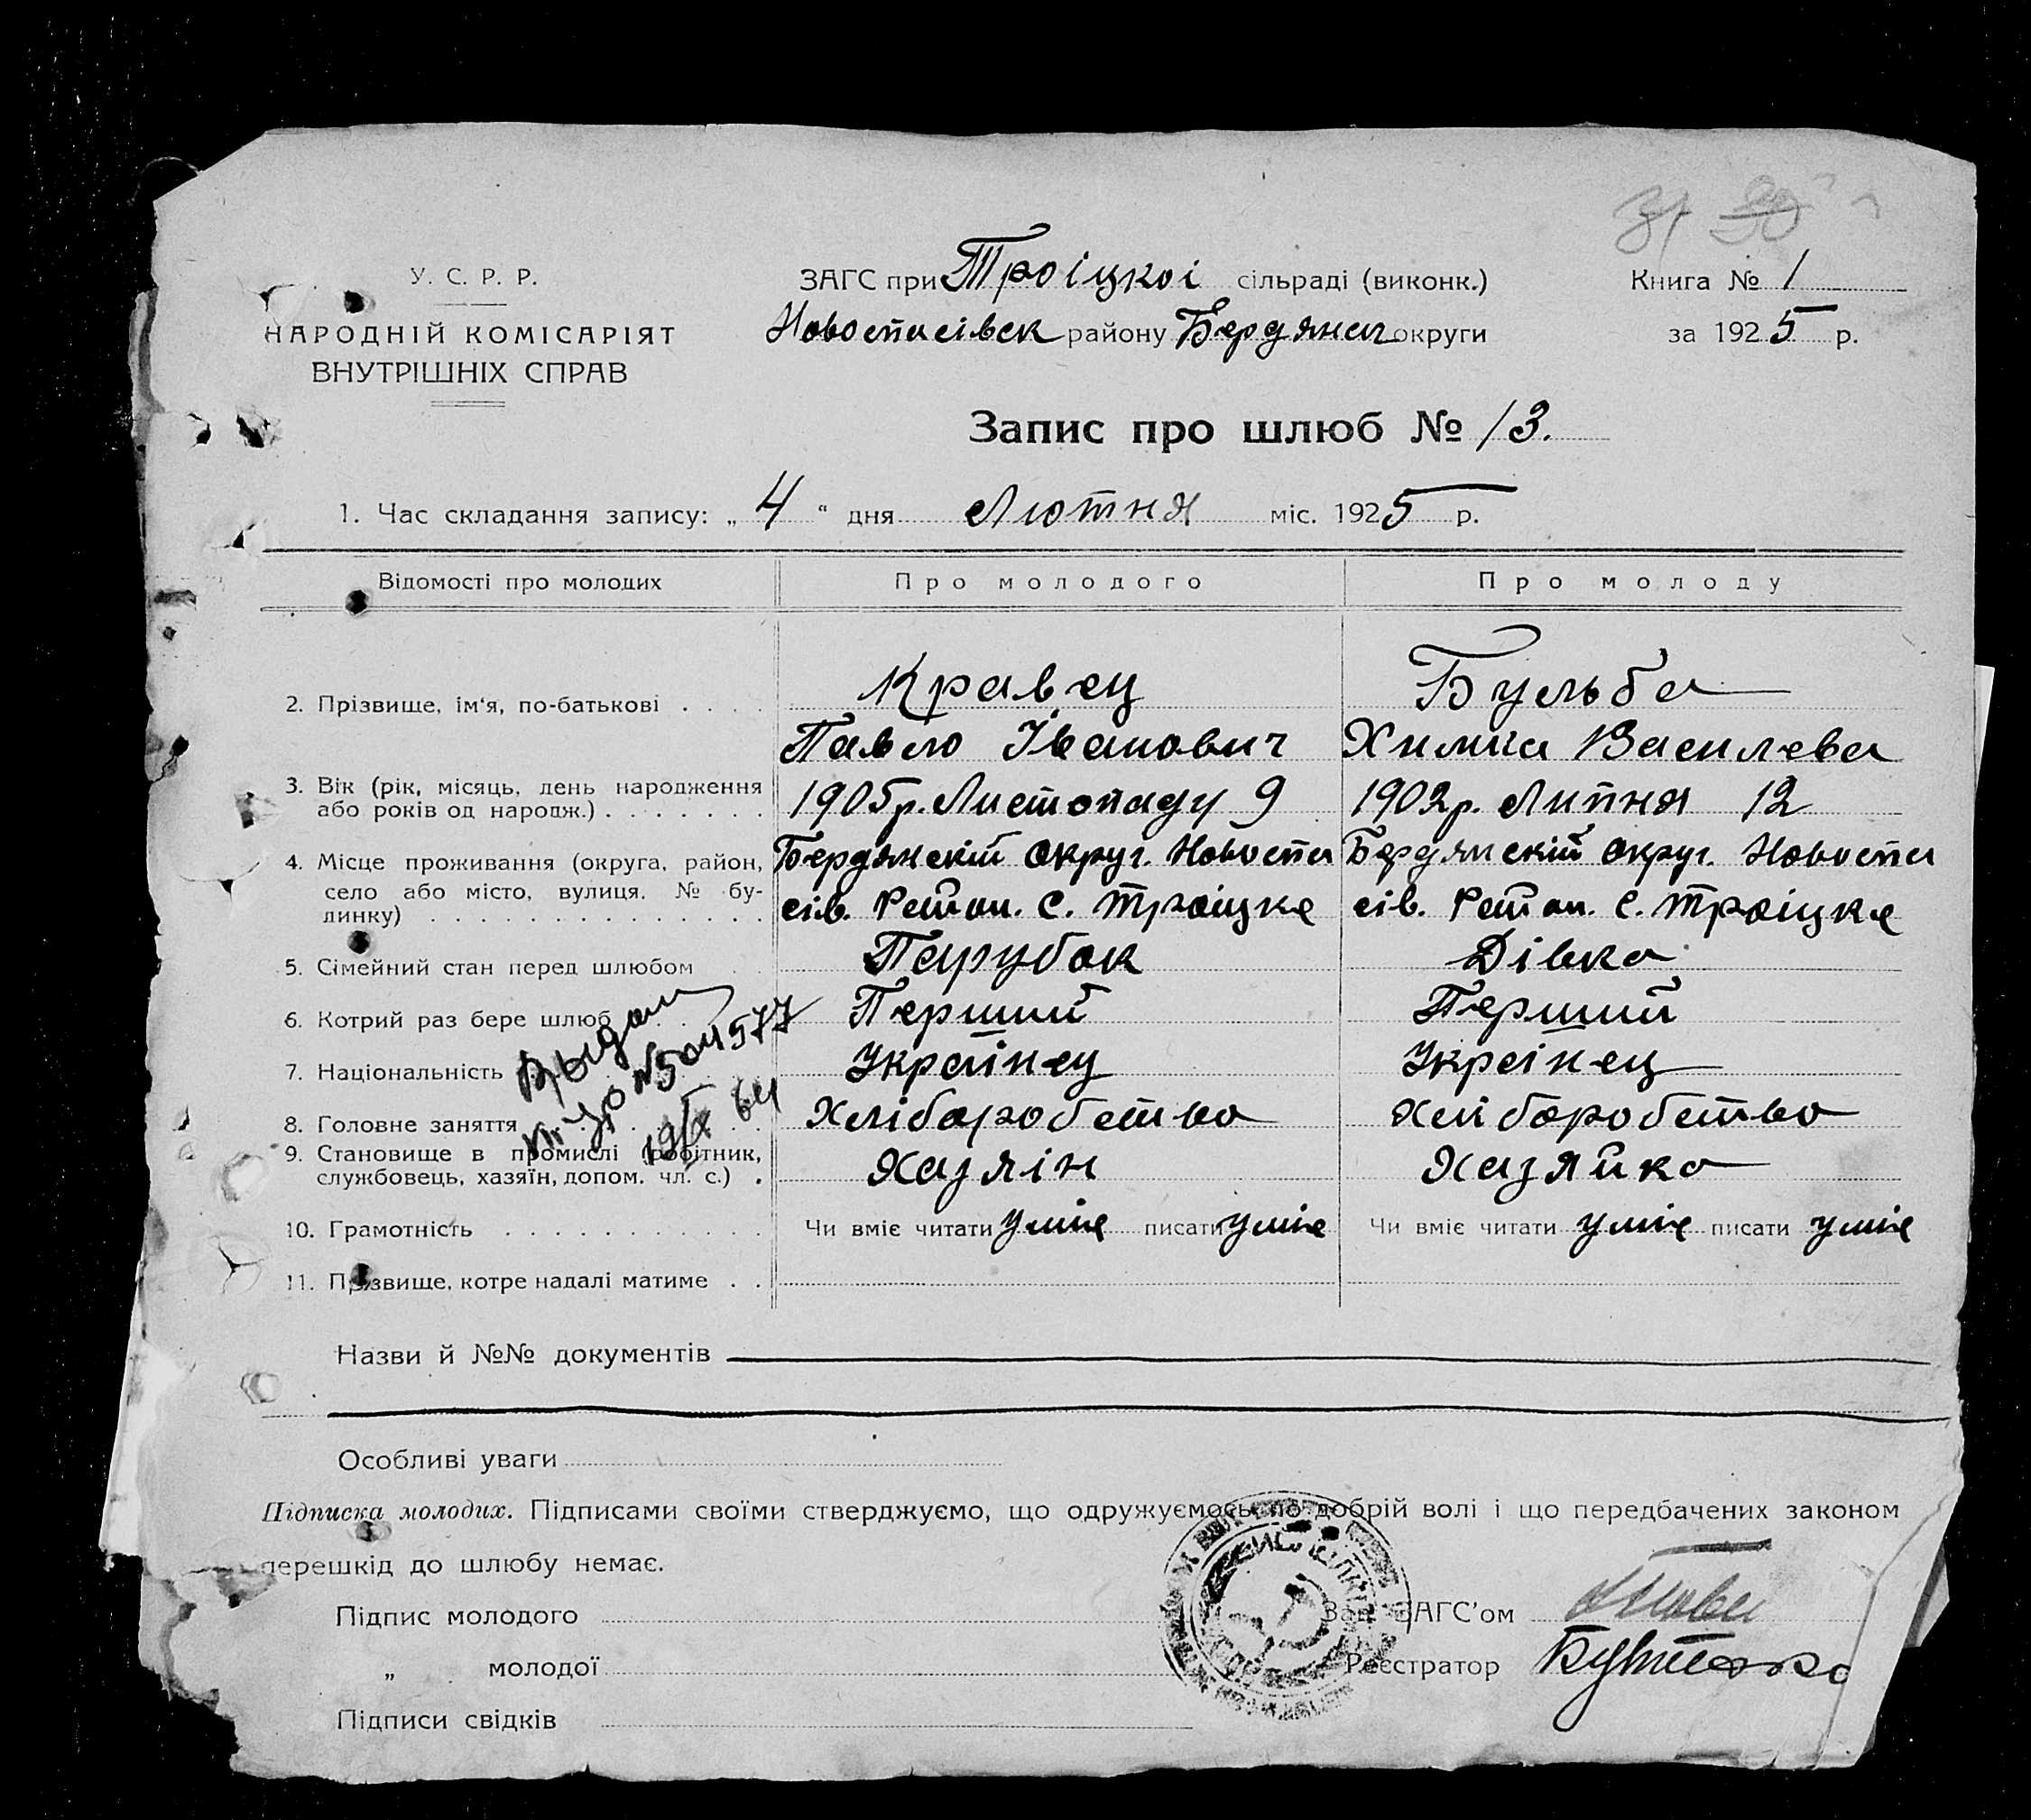 31 30
У. С. Р. Р.
НАРОДНІЙ КОМІСАРІЯТ
ВНУТРІШНІХ СПРАВ
ЗАГС при Троіцкоі сільраді (виконк.)
Новоспасівск району Бердянск округи
Книга № 1
за 1925 р.
Запис про шлюб № 13.
1. Час складання запису: „ 4 “ дня Лютня міс. 1925 р.
Відомості про молодих Про молодого Про молоду
2. Прізвище, ім‘я, по-батькові . . . . Кравец Бульба
Павло Іванович Химка Василева
3. Вік (рік, місяць, день народження 1905р. Листопаду 9 1902р. Липня 12
або років од народж.) . . . . . . .
4. Місце проживання (округа, район, Бердянскій округ. Новоспа Бердянскій округ. Новоспа
село або місто, вулиця, № бу- сів. Район. С. Троіцке сів. Район. С. Троіцке
динку) . . . . . . . . . . . . . .
5. Сімейний стан перед шлюбом . . Парубок Дівка
6. Котрий раз бере шлюб . . . Перший Перший
7. Національність Украінец Украінец
8. Головне заняття . . . . Хліборобство Хліборобство
9. Становище в промислі (робітник, Хазяін Хазяйка
службовець, хазяїн, допом. чл. с.) .
10. Грамотність . . . . . . . . . . . Чи вміє читати уміє писати уміє Чи вміє читати уміє писати уміє
11. Прізвище, котре надалі матиме . .
Выдан
№ 504577
64
Назви й №№ документів
Особливі уваги
Підписка молодих. Підписами своїми стверджуємо, що одружуємось по добрій волі і що передбачених законом
перешкід до шлюбу немає.
Підпис молодого Зав. ЗАГС’ом
„ молодої Реєстратор
Підписи свідків